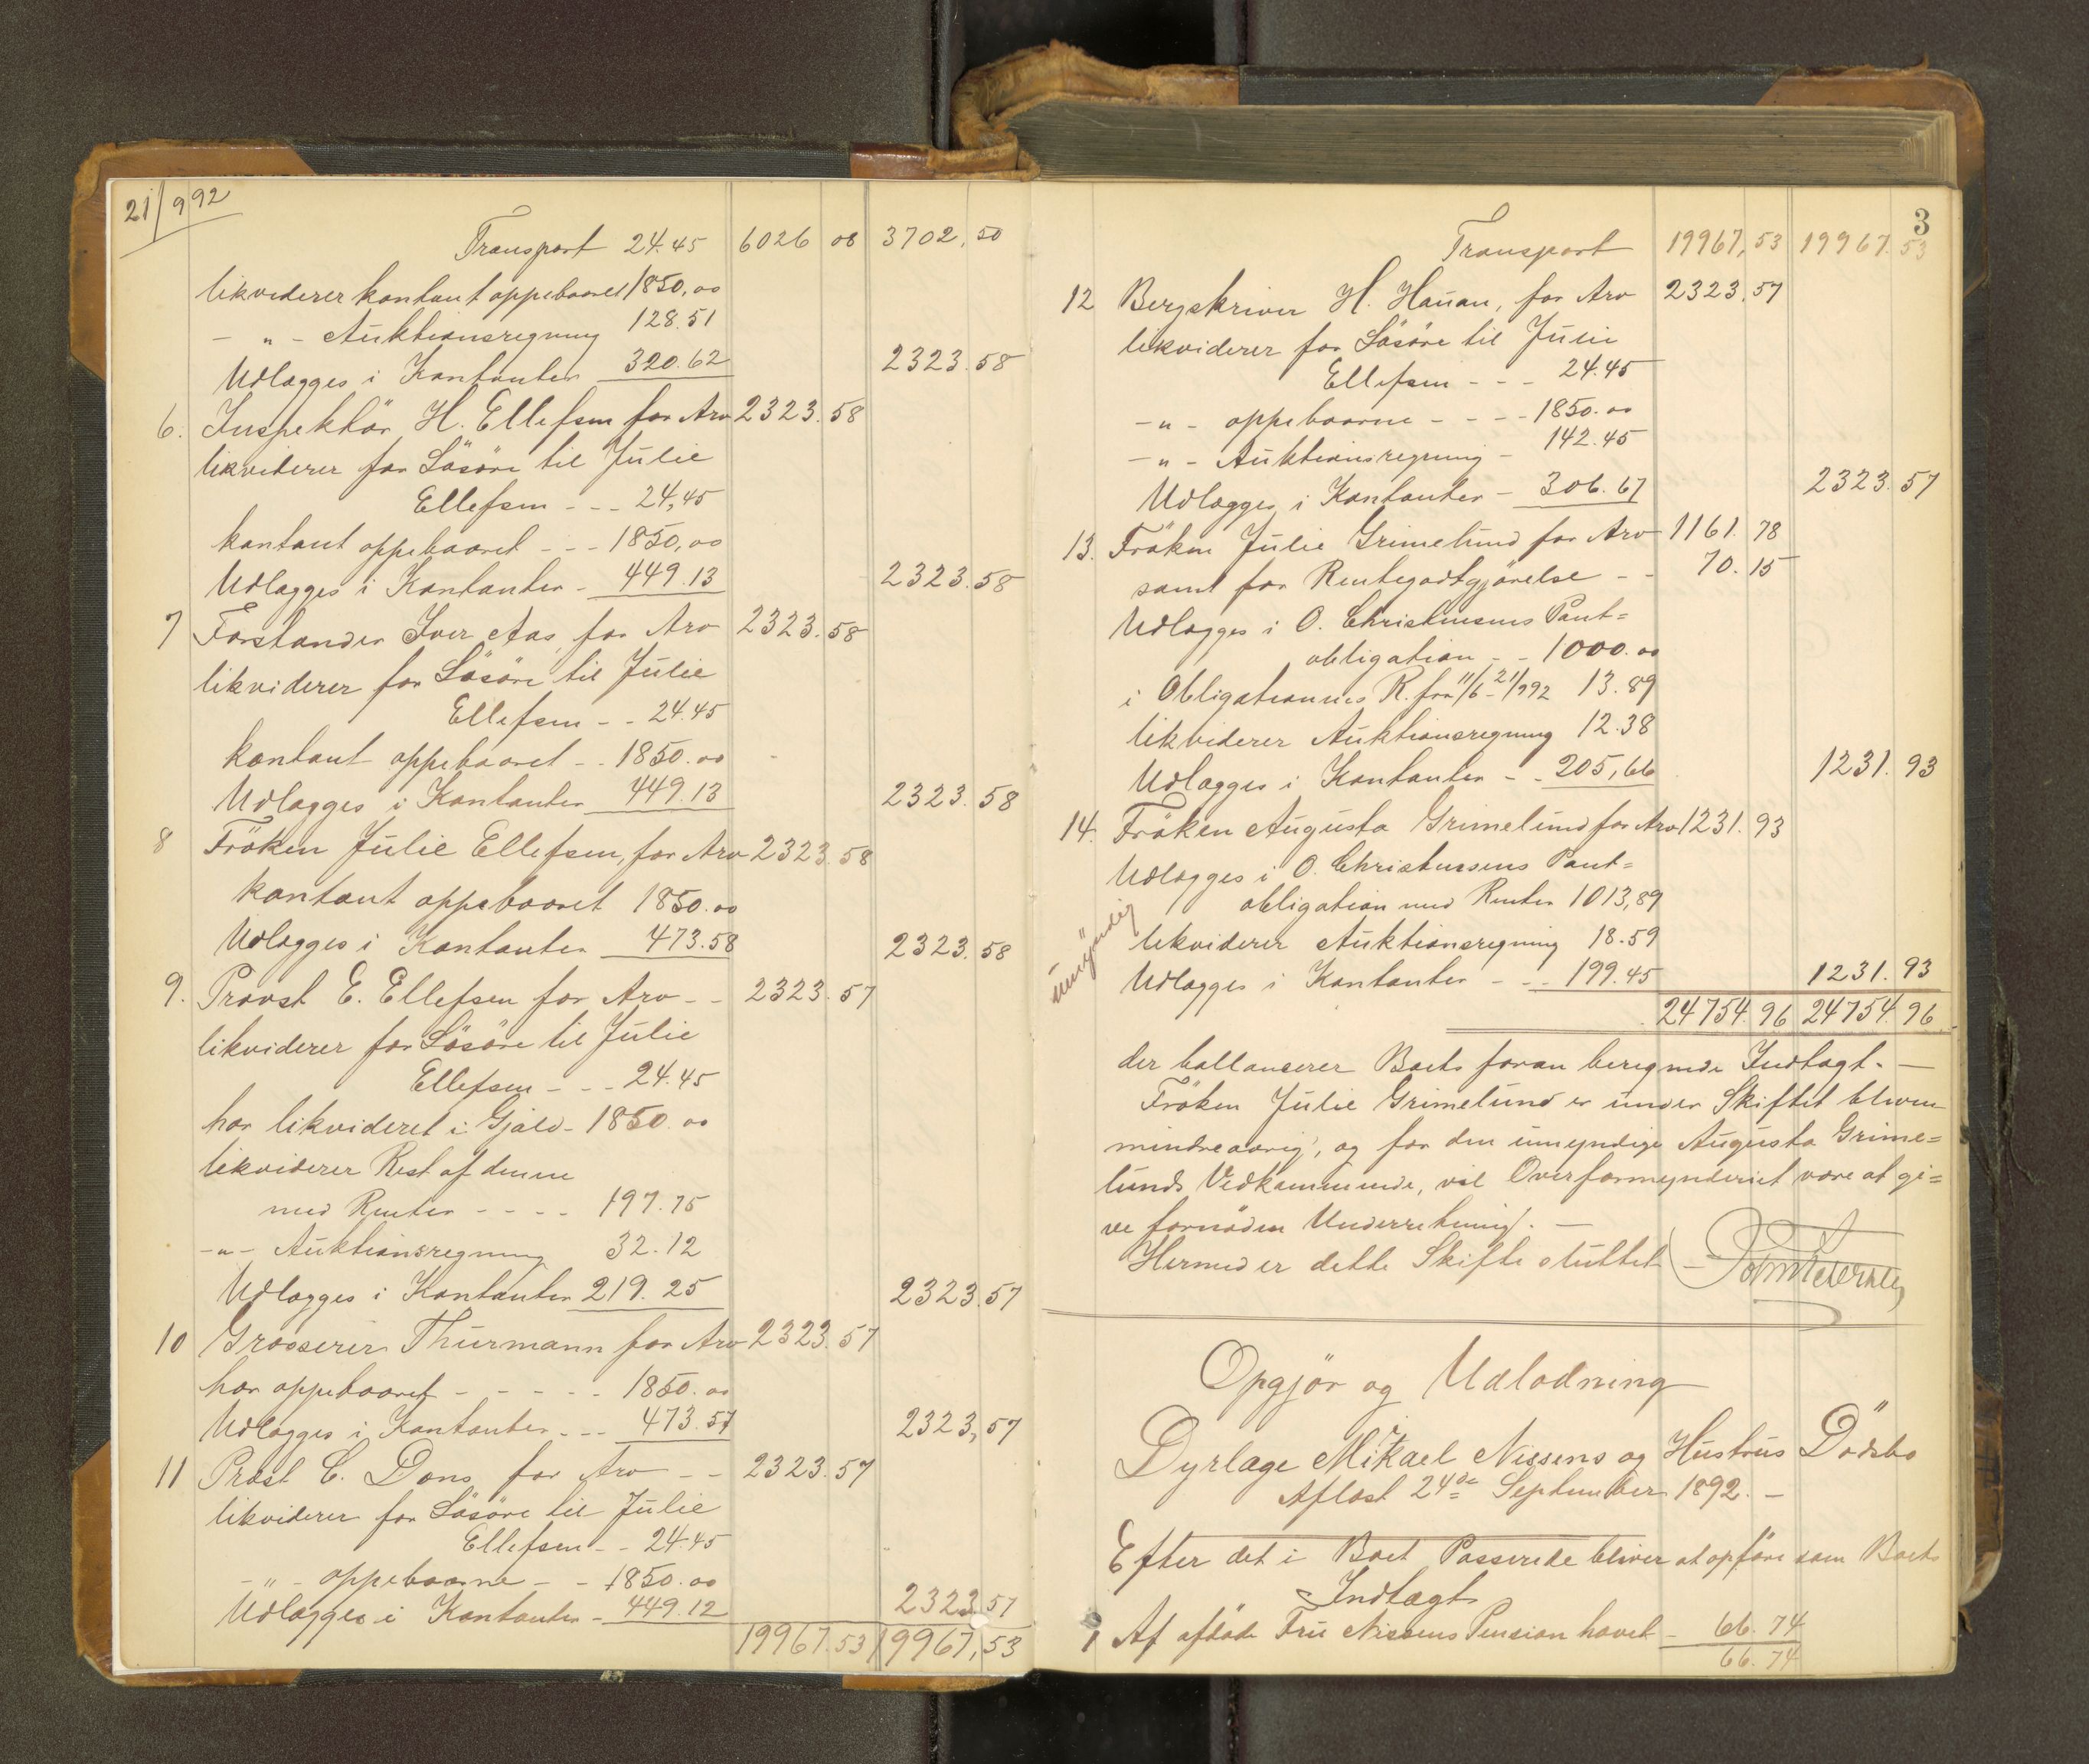 21/9 92
Transport 24.45 6026 08 3702,50
likviderer kontant oppebaaret 1850,00
- " - Auktionsregning 128.51
Udlægges i Kontanter 320.62 2323.58
6. Inspektör H. Ellefsen for Arv 2323.58
likviderer for Lösöre til Julie
Ellefsen - - - 24,45
kontant oppebaaret - - - 1850,00
Udlægges i Kontanter - 449.13 2323.58
7 Forstander Iver Aas, for Arv 2323.58
likviderer for Lösöre til Julie
Ellefsen - - 24.45
kontant oppebaaret - - 1850.00
Udlægges i Kontanter 449.13 2323.58
8 Fröken Julie Ellefsen, for Arv 2323.58
kontant oppebaaret 1850.00
Udlægges i Kontanter 473.58 2323.58
9. Provst E. Ellefsen for Arv - - 2323.57
likviderer for Lösöre til Julie
Ellefsen - - - 24.45
har likvideret i Gjæld - 1850.00
likviderer Rest af denne
med Renter - - - - 197.75
- " - Auktionsregning 32.12
Udlægges i Kontanter 219.25 2323.57
10 Grosserer Thurmann for Arv 2323.57
har oppebaaret - - - - - 1850.00
Udlægges i Kontanter - - - 473.57 2323,57
11 Præst C. Dons for Arv - - 2323.57
likviderer for Lösöre til Julie
Ellefsen - - 24.45
- " - oppebaarne - - 1850.00
Udlægges i Kontanter - 449.12 2323.57
19967.53 19967,53
3
Transport 19967,53 19967.53
12 Bergskriver H. Hauan, for Arv 2323.57
likviderer for Lösöre til Julie
Ellefsen - - - 24.45
- " - oppebaarne - - - - 1850.00
- " - Auktionsregning - 142.45
Udlægges i Kontanter - 306.67 2323.57
13. Fröken Julie Grimelund for Arv 1161.78
samt for Rentegodtgjörelse - - 70.15
Udlægges i O. Christensens Pant=
obligation - - 1000.00
i Obligationens R. fra 11/6 - 21/992 13.89
likviderer Auktionsregning 12.38
Udlægges i Kontanter - - 205,66 1231.93
14. Fröken Augusta Grimelund for Arv 1231.93
Udlægges i O. Christensens Pant=
obligation med Renter 1013,89
umyndig
likviderer Auktionsregning 18.59
Udlægges i Kontanter - - - 199.45 1231.93
24754.96 24754.96
der ballancerer Boets foran beregnede Indtægt. -
Fröken Julie Grimelund er under Skiftet bleven
mindreaarig, og for den umyndige Augusta Grime=
lunds Vedkommende, vil Overformynderiet være at gi=
ve fornöden Underretning. -
Hermed er dette Skifte sluttet
Opgjör og Udlodning
Dyrlæge Mikael Nissens og Hustrus Dödsbo
Aflæst 24de September 1892. -
Efter det i Boet Passerede bliver at opföre som Boets
Indtægt
1 Af afdöde Fru Nissens Pension hævet - 66.74
66.74